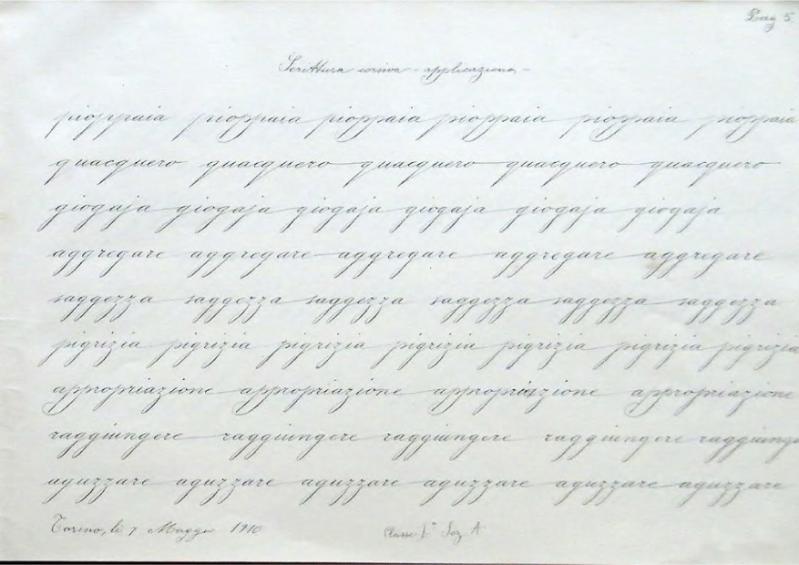 Pag 5.
Scrittura corsiva - applicazione -
pioppaia pioppaia pioppaia pioppaia pioppaia pioppaia
quacquero quacquero quacquero quacquero quacquero
giogaja giogaja giogaja giogaja giogaja giogaja
aggregare aggregare aggregare aggregare aggregare
saggezza saggezza saggezza saggezza saggezza saggezza
pigrizia pigrizia pigrizia pigrizia pigrizia pigrizia pigrizia
appropriazione appropriazione appropriazione appropriazione
raggiungere raggiungere raggiungere raggiungere raggiunge
aguzzare aguzzare aguzzare aguzzare aguzzare aguzzare
Torino, li 7 Maggio 1910 Classe 1ª Sez A